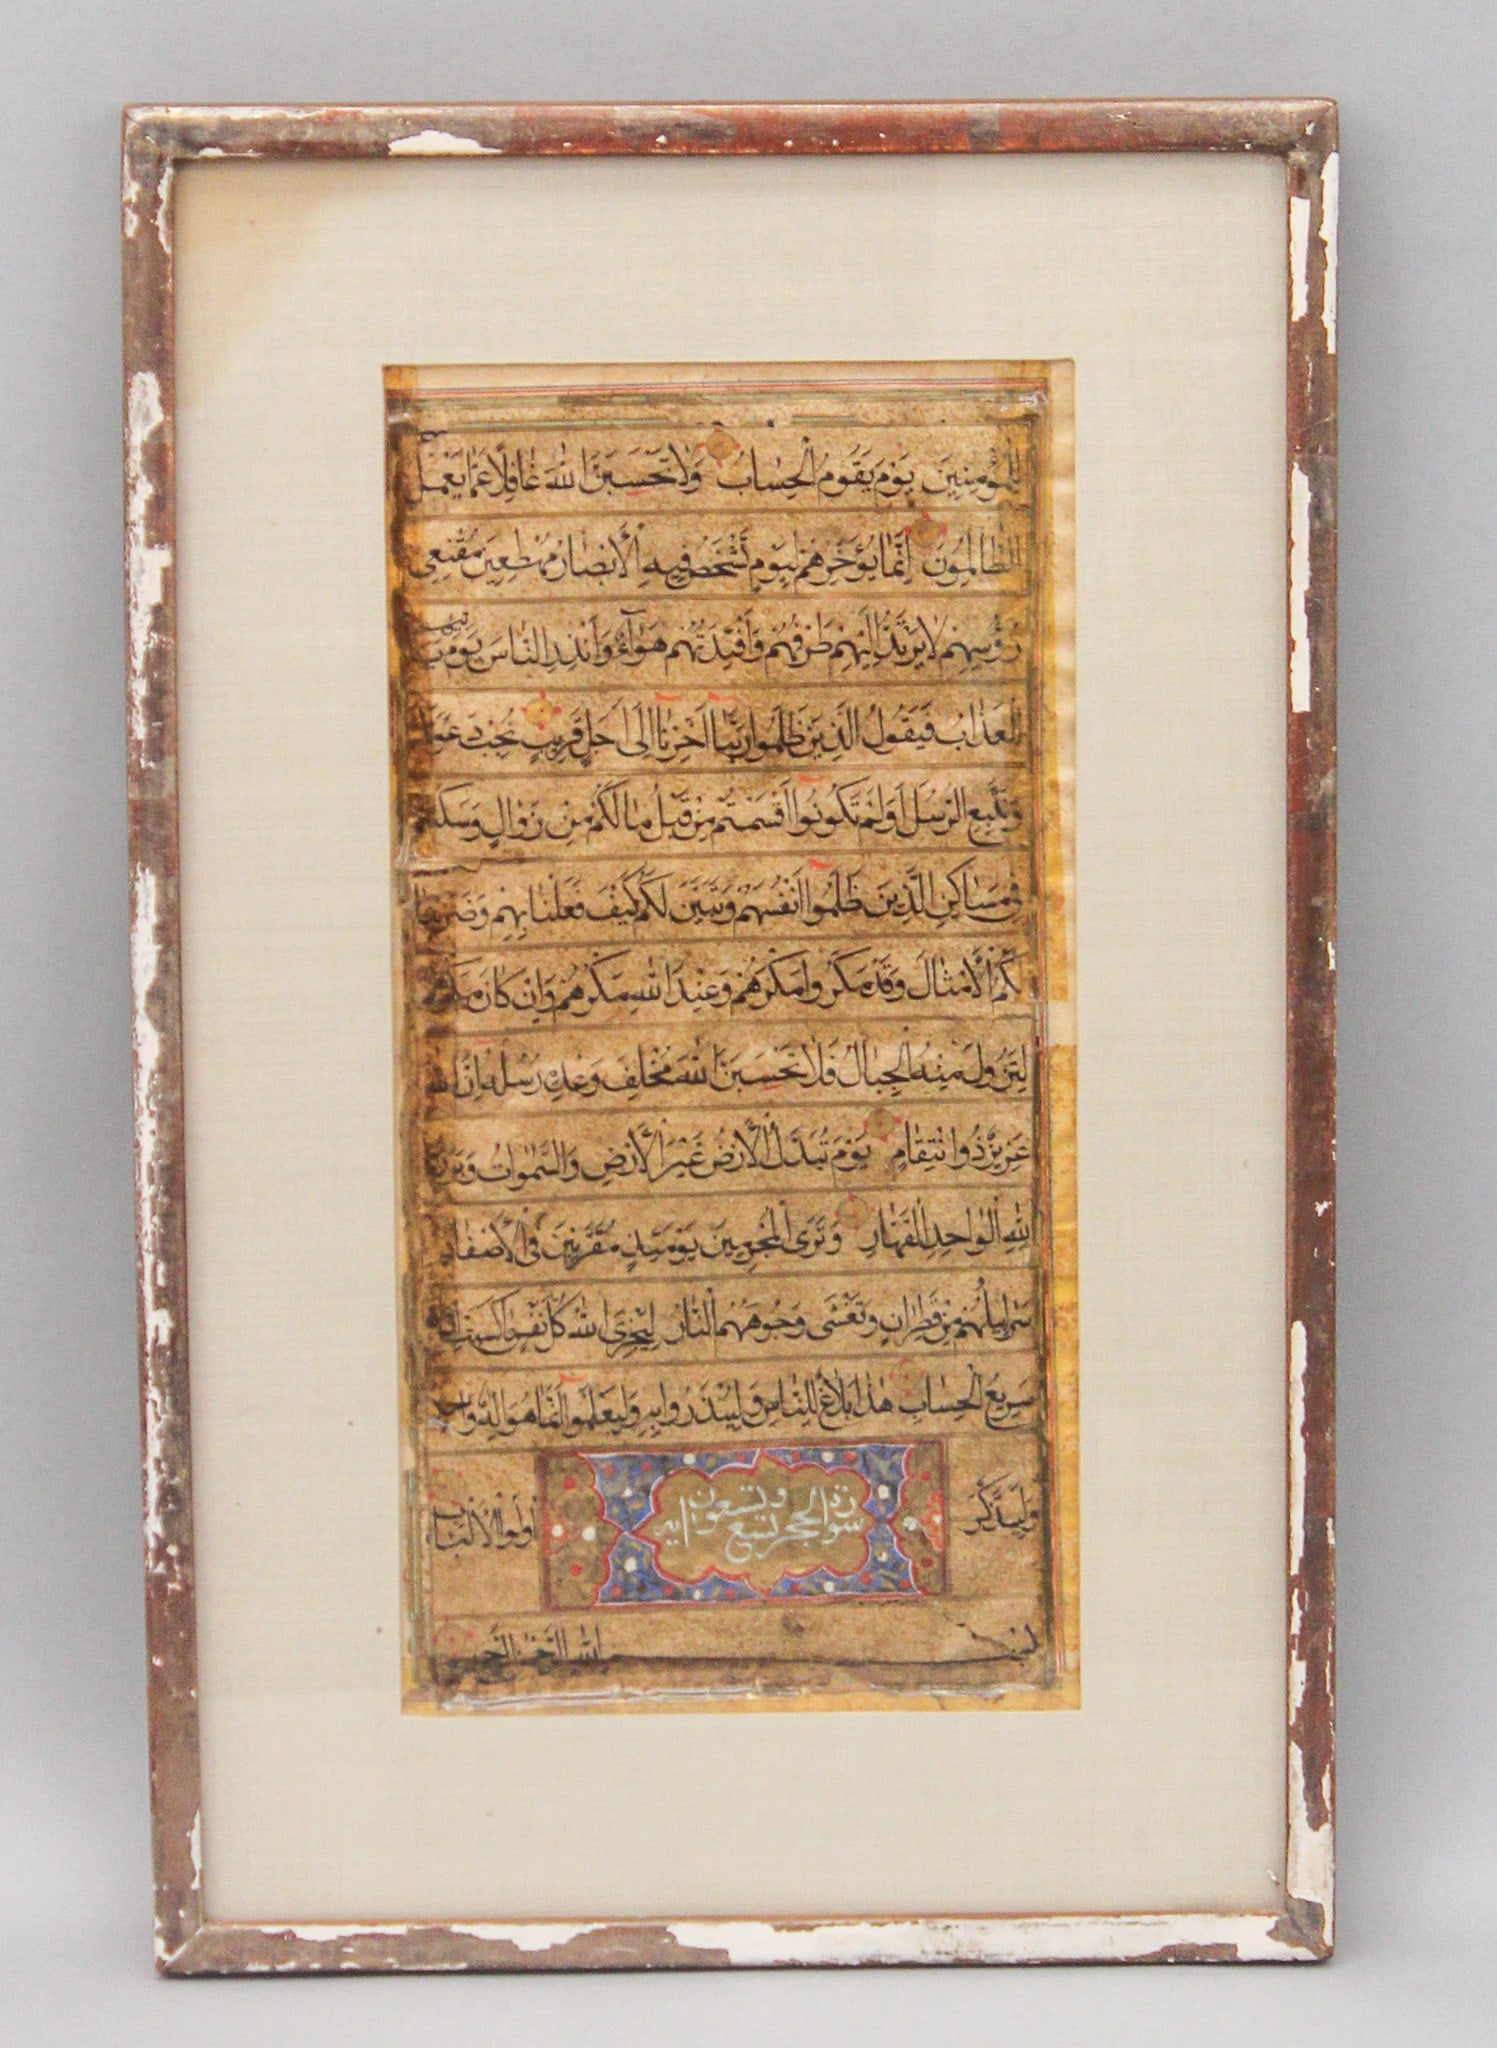 لِلْمُؤْمِنِينَ يَوْمَ يَقُومُ الْحِسَابُ وَلَا تَحْسَبَنَّ اللّٰهَ غَافِلًا عَمَّا يَعْمَلُ
الظَّالِمُونَ اِنَّمَا يُؤَخِّرُهُمْ لِيَوْمٍ تَشْخَصُ فِيهِ الْأَبْصَارُ مُهْطِعِينَ مُقْنِعِي
رُؤُسِهِمْ لَا يَرْتَدُّ اِلَيْهِمْ طَرْفُهُمْ وَأَفْئِدَتُهُمْ هَوَآءٌ وَأَنْذِرِ النَّاسَ يَوْمَ يَأْتِيهِمُ
الْعَذَابُ فَيَقُولُ الَّذِينَ ظَلَمُوا رَبَّنَا أَخِّرْنَا اِلَى اَجَلٍ قَرِيبٍ نُجِبْ دَعْوَتَكَ
وَنَتَّبِعِ الرُّسُلَ اَوَلَمْ تَكُونُوا أَقْسَمْتُمْ مِنْ قَبْلُ مَا لَكُمْ مِنْ زَوَالٍ وَسَكَنْتُمْ
فِي مَسَاكِنِ الَّذِينَ ظَلَمُوا أَنْفُسَهُمْ وَتَبَيَّنَ لَكُمْ كَيْفَ فَعَلْنَا بِهِمْ وَضَرَبْنَا
لَكُمُ الْأَمْثَالَ وَقَدْ مَكَرُوا مَكْرَهُمْ وَعِنْدَ اللّٰهِ مَكْرُهُمْ وَاِنْ كَانَ مَكْرُهُمْ
لِتَزُولَ مِنْهُ الْجِبَالُ فَلَا تَحْسَبَنَّ اللّٰهَ مُخْلِفَ وَعْدِهِ رُسُلَهُ اِنَّ اللّٰهَ
عَزِيزٌ ذُو انْتِقَامٍ يَوْمَ تُبَدَّلُ الْأَرْضُ غَيْرَ الْأَرْضِ وَالسَّمٰوَاتُ وَبَرَزُوا
لِلّٰهِ الْوَاحِدِ الْقَهَّارِ وَتَرَى الْمُجْرِمِينَ يَوْمَئِذٍ مُقَرَّنِينَ فِي الْأَصْفَادِ
سَرَابِيلُهُمْ مِنْ قَطِرَانٍ وَتَغْشَى وُجُوهَهُمُ النَّارُ لِيَجْزِيَ اللّٰهُ كُلَّ نَفْسٍ مَا كَسَبَتْ اِنَّ اللّٰهَ
سَرِيعُ الْحِسَابِ هٰذَا بَلَاغٌ لِلنَّاسِ وَلِيُنْذَرُوا بِهِ وَلِيَعْلَمُوا اَنَّمَا هُوَ اِلٰهٌ وَاحِدٌ
وَلِيَذَّكَّرَ اُولُوا الْأَلْبَابِ
سورة الحجر تسع وتسعون اية
بسم الله الرحمن الرحيم